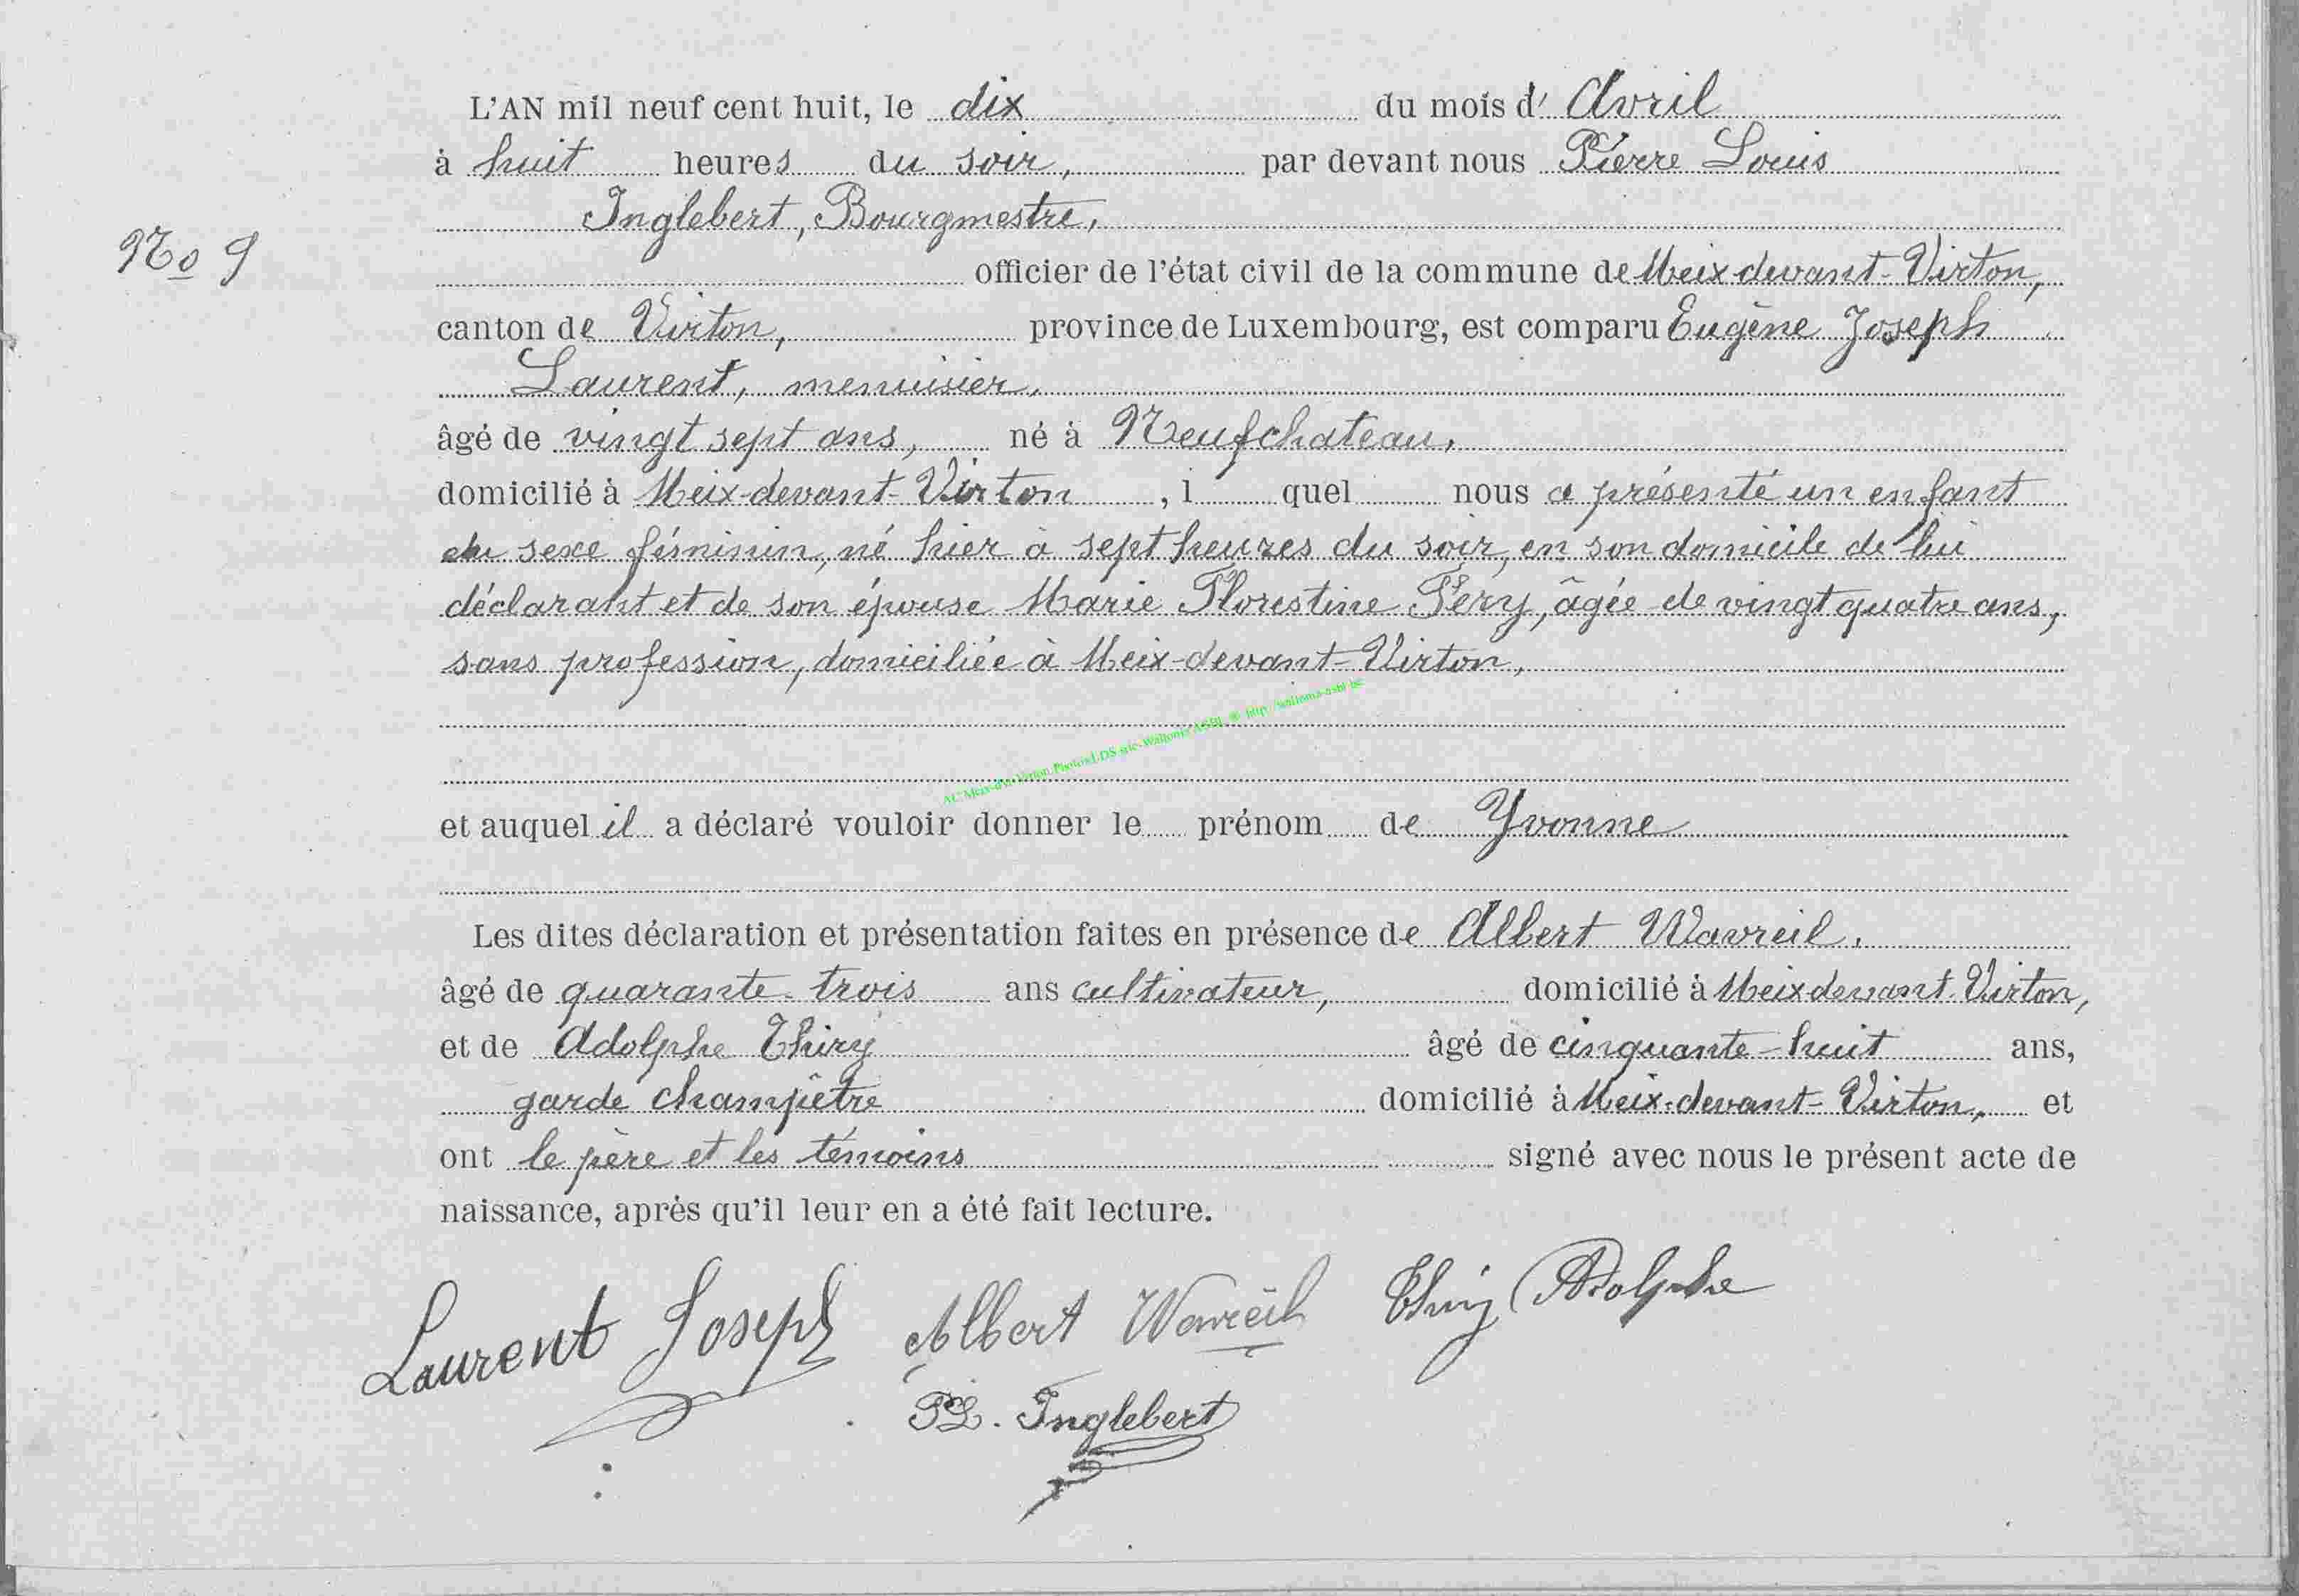 L'AN mil neuf cent huit, le dix du mois d' Avril
à huit heures du soir, par devant nous Pierre Louis
Inglebert, Bourgmestre,
No 9
officier de l'état civil de la commune de Meix-devant-Virton,
canton de Virton, province de Luxembourg, est comparu Eugène Joseph
Laurent, menuisier,
âgé de vingt sept ans, né à Neufchateau,
domicilié à Meix-devant-Virton , l quel nous a présenté un enfant
du sexe féminin, né hier à sept heures du soir, en son domicile de lui
déclarant et de son épouse Marie Florestine Féry, âgée de vingt quatre ans,
sans profession, domiciliée à Meix-devant-Virton,
et auquel il a déclaré vouloir donner le prénom de Yvonne
Les dites déclaration et présentation faites en présence de Albert Wavreil,
âgé de quarante-trois ans cultivateur, domicilié à Meix devant-Virton,
et de Adolphe Thiry âgé de cinquante-huit ans,
garde champêtre domicilié à Meix-devant-Virton, et
ont le père et les témoins signé avec nous le présent acte de
naissance, après qu'il leur en a été fait lecture.
Laurent Joseph Albert Wavreil Thiry Adolphe
PL. Inglebert